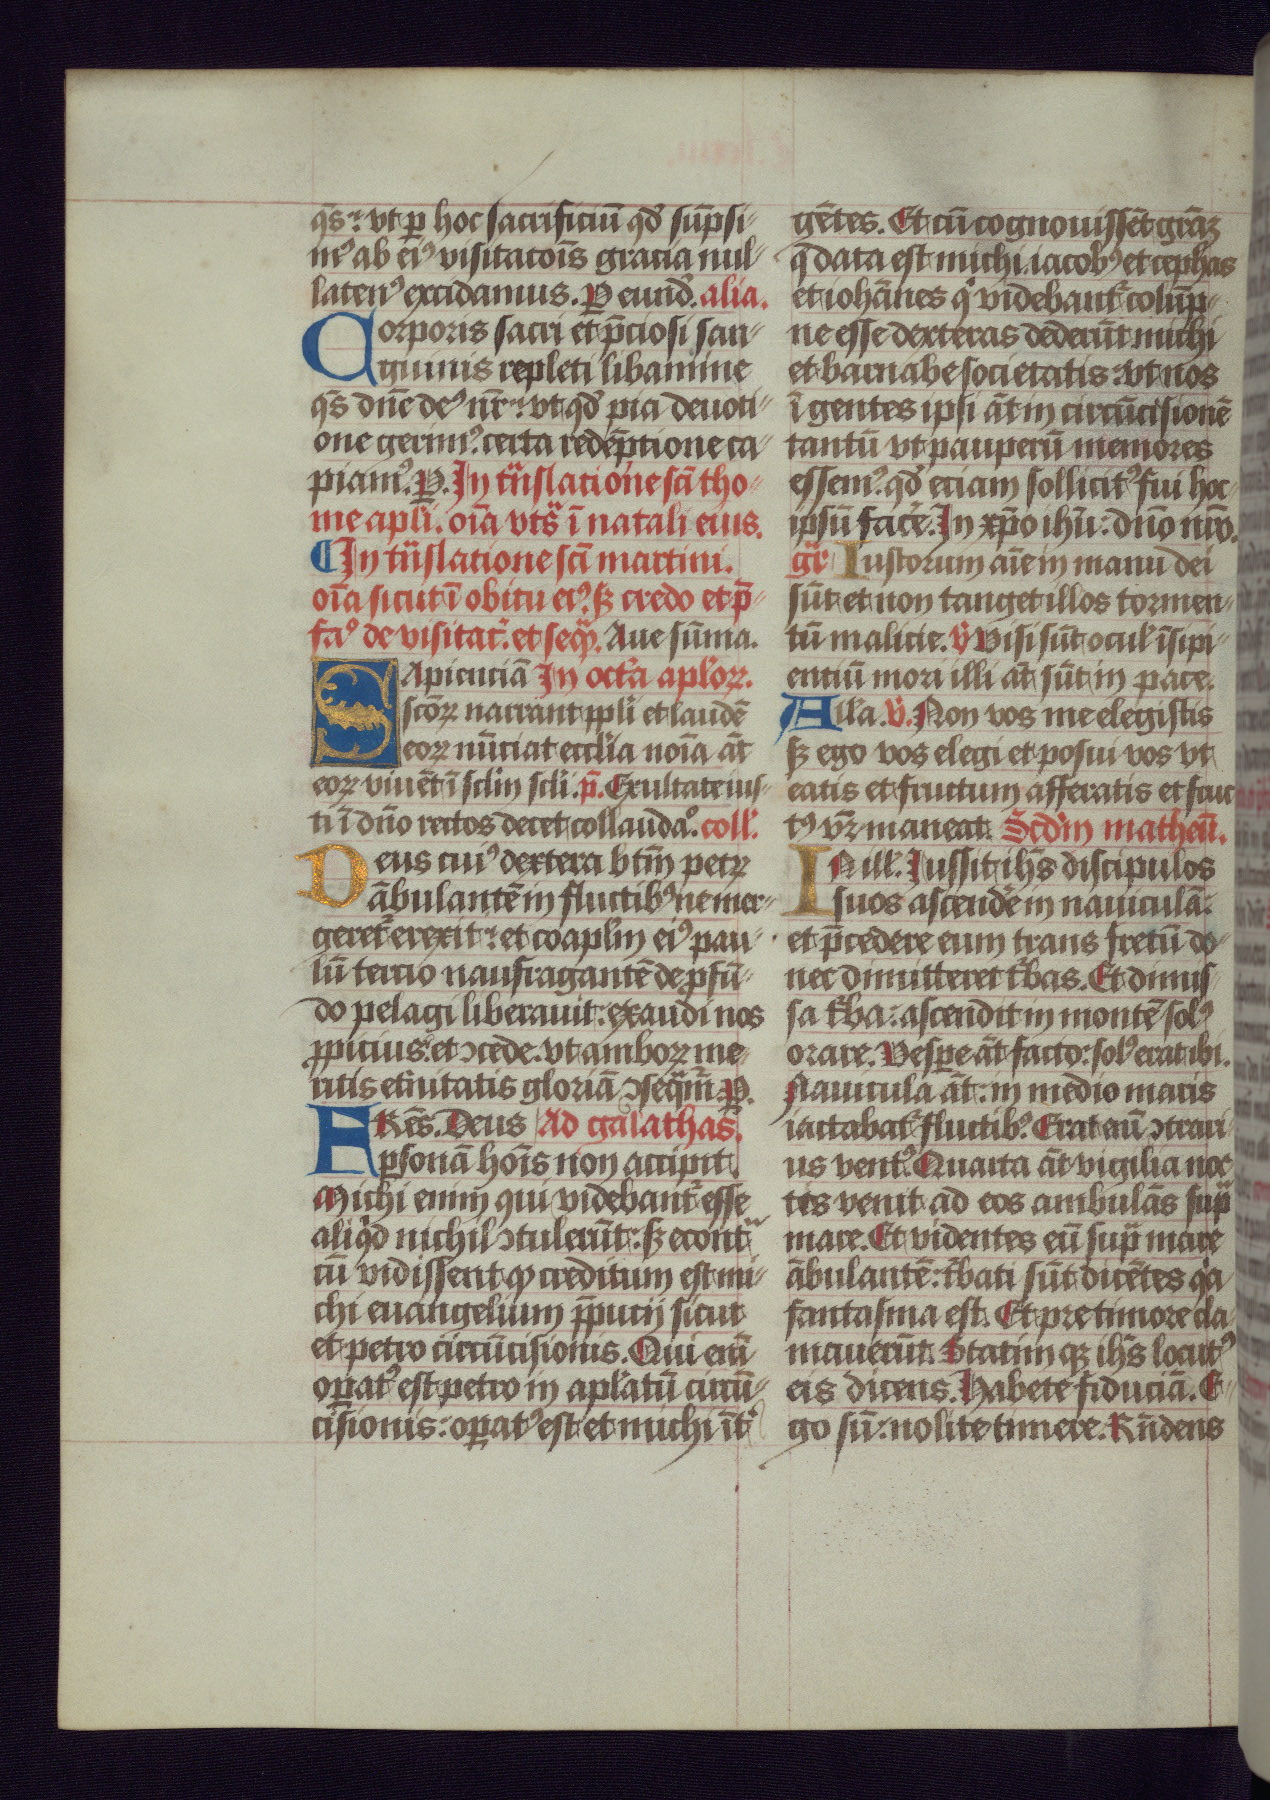 q̄s: vt p hoc sacrificiū qď sūpsi-
mꝰ ab eiꝰ visitatoīs gracia nul-
latenꝰ excidamus. P eunď. alia.
Corporis sacri et p̄ciosi san-
guinis repleti libamine
q̄s dn̄e deꝰ nr̄: vt qď pia deuoti-
one gerimꝰ. certa redēptione ca-
piamꝰ. P. In trn̄slatione scī tho-
me apl̄i. oīa vts̄ ī natali eius.
In trn̄slatione scī martini.
oīa sicut ī obitu eiꝰ. sꝫ credo et p̄-
faꝰ de visitat. et seq̄. Aue sūma.
Sapienciā In octa aploꝝ.
scōꝝ narrant ppl̄i et laudē
eoꝝ nūciat eccl̄ia noīa āt
eoꝝ viuēt ī scl̄m scl̄i. p̄. Exultate ius-
ti ī dn̄o rectos decet collaudaꝰ. coll̄.
Deus cuiꝰ dextera btm̄ petꝝ
ābulantē in fluctibꝰ ne mer-
geret erexit: et coapl̄m eiꝰ pau-
lū tercio naufragantē de ꝓfū-
do pelagi liberauit: exaudi nos
ꝓpicius: et ↄcede. vt amboꝝ me-
ritis et̄nitatis gloriā ↄseq̄mr̄. P.
FRēs. Deus Ad galathas.
psonā hoīs non accipit.
Michi enim qui videbant esse
aliqd nichil ↄtulerūt: sꝫ econt
cū vidissent ꝙ creditum est mi-
chi euangelium p̄pucij sicut
et petro circūcisionis. Qui enī
opatꝰ est petro in apl̄atū circū-
cisionis: opatꝰ est et michi īt
gētes. Et cū cognouissēt grāꝫ
q̄ data est michi. iacobꝰ et cephas
et iohānes q videbant colūp-
ne esse dexteras dederūt michi
et barnabe societatis: vt nos
ī gentes ipsi āt in circūcisionē
tantū vt pauperū memores
essemꝰ. qď eciam sollicitꝰ fui hoc
ipsū facēe. In xp̄o ihū: dn̄o nr̄o.
gr̄ Iustorum aīe in manu dei
sūt et non tanget illos tormen-
tū malicie. v̄ Visi sūt ocul īsipi-
entiū mori illi āt sūt in pace.
All̄a. v̄. Non vos me elegistis
sꝫ ego vos elegi et posui vos vt
eatis et fructum afferatis et fruc
tꝰ vr̄ maneat. Scd̄m matheū.
IN ill̄. Iussit ihs̄ discipulos
suos ascendēe in nauiculā:
et p̄cedere eum trans fretū do-
nec dimitteret tbas. Et dimis-
sa tba: ascendit in montē solꝰ
orare. Vespe āt facto: solꝰ erat ibi.
Nauicula āt: in medio maris
iactabat fluctibꝰ. Erat enī ↄtrari-
us ventꝰ. Quarta āt vigilia noc-
tis venit ad eos ambulās sup
mare. Et videntes eū sup mare
ābulantē: tbati sūt dicētes qa
fantasma est. Et pre timore cla-
mauerūt. Statimqꝫ ihs̄ locutꝰ
eis dicens. Habete fiduciā. E-
go sū: nolite timere. Rn̄dens